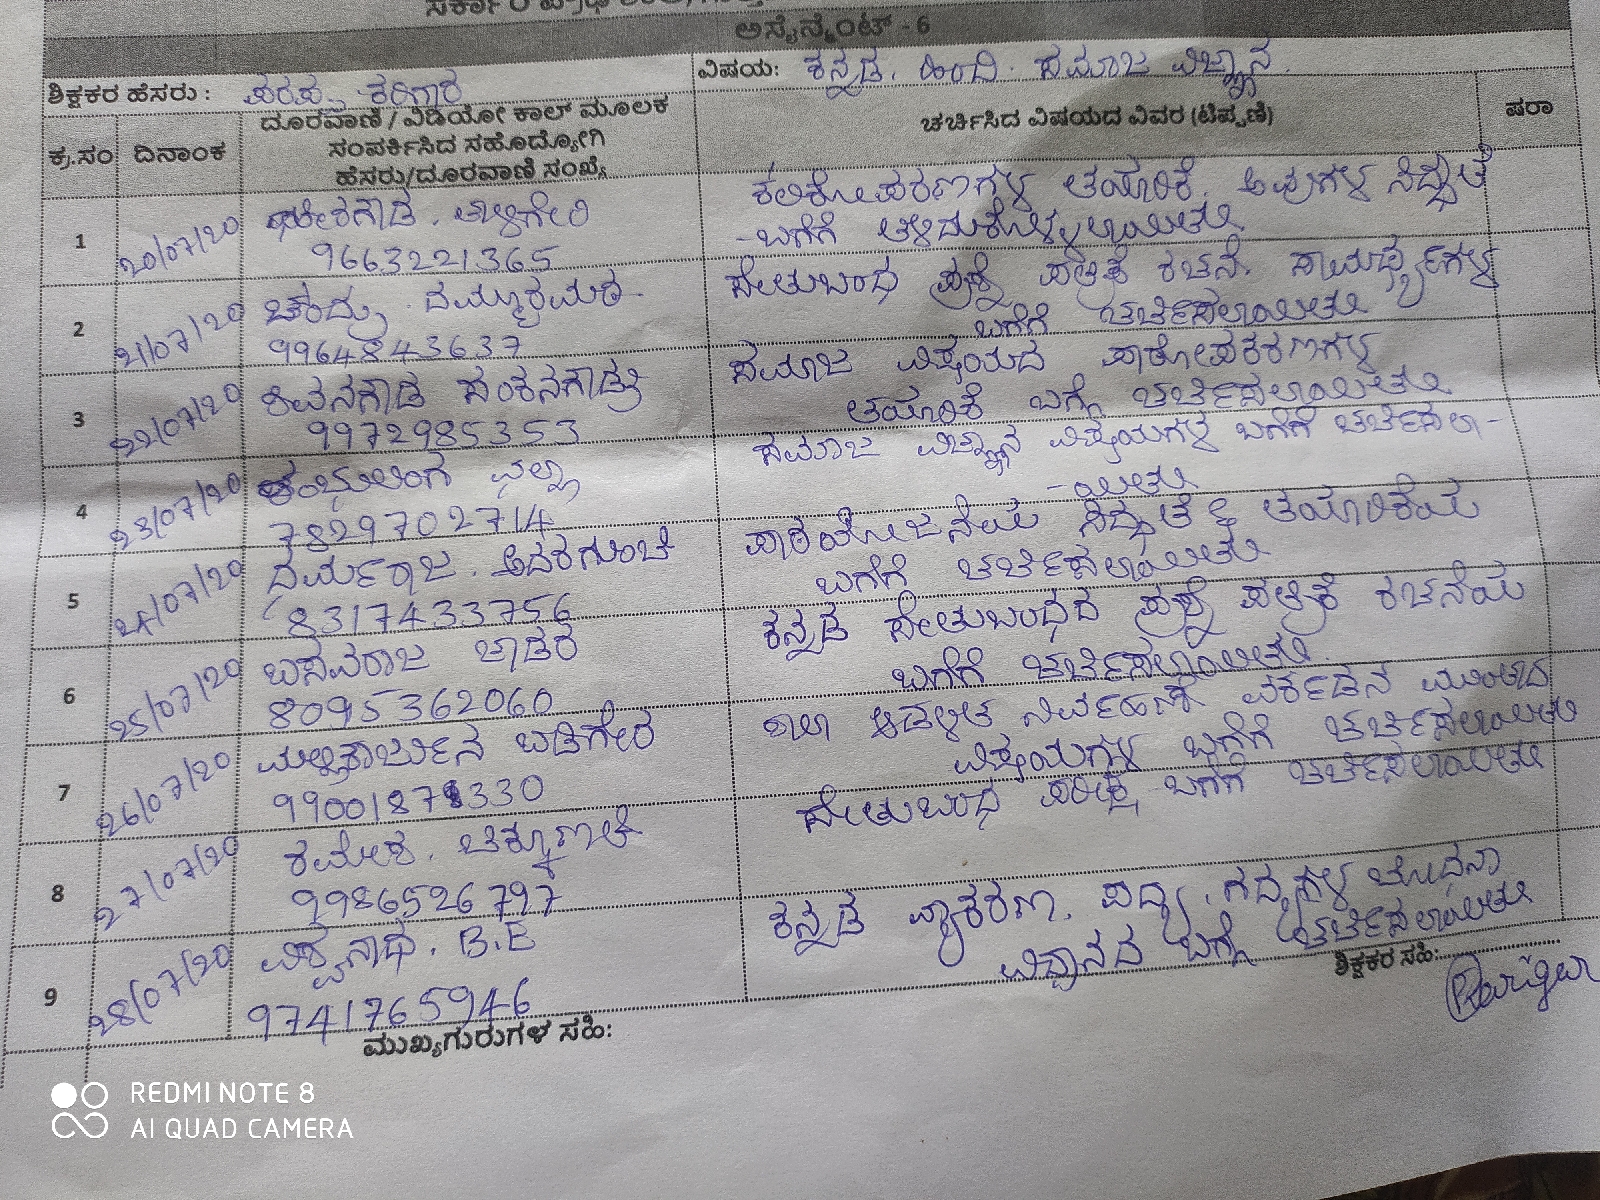 ಅಸೈನ್ಮೆಂಟ್ - 6
ಶಿಕ್ಷಕರ ಹೆಸರು :
ವಿಷಯ: ಕನ್ನಡ. ಹಿಂದಿ. ಸಮಾಜ ವಿಜ್ಞಾನ.
ಕ್ರ.ಸಂ ದಿನಾಂಕ
ದೂರವಾಣಿ / ವಿಡಿಯೋ ಕಾಲ್ ಮೂಲಕ
ಸಂಪರ್ಕಿಸಿದ ಸಹೋದ್ಯೋಗಿ
ಹೆಸರು/ದೂರವಾಣಿ ಸಂಖ್ಯೆ
ಚರ್ಚಿಸಿದ ವಿಷಯದ ವಿವರ (ಟಿಪ್ಪಣಿ)
ಷರಾ
1 20/07/20
9663221365
ಕಲಿಕೋಪಕರಣಗಳ ತಯಾರಿಕೆ. ಅವುಗಳ ಸಿದ್ಧತೆ
-ಬಗೆಗೆ ತಿಳಿದುಕೊಳ್ಳಲಾಯಿತು
2 21/07/20
9964843637
ಸೇತುಬಂಧ ಪ್ರಶ್ನೆ ಪತ್ರಿಕೆ ರಚನೆ. ಸಾಮರ್ಥ್ಯಗಳ
ಬಗೆಗೆ ಚರ್ಚಿಸಲಾಯಿತು
3 22/07/20 ಶಿವನಗೌಡ
9972985353
ಸಮಾಜ ವಿಷಯದ ಪಾಠೋಪಕರಣಗಳ
ತಯಾರಿಕೆ ಬಗ್ಗೆ ಚರ್ಚಿಸಲಾಯಿತು
4 23/07/20
7829702714
ಸಮಾಜ ವಿಜ್ಞಾನ ವಿಷಯಗಳ ಬಗೆಗೆ ಚರ್ಚಿಸಲಾ-
-ಯಿತು
5 24/07/20 ಧರ್ಮರಾಜ. ಅದರಗುಂಚಿ
8317433756
ಪಾಠಯೋಜನೆಯ ಸಿದ್ಧತೆ & ತಯಾರಿಕೆಯ
ಬಗೆಗೆ ಚರ್ಚಿಸಲಾಯಿತು
6 25/07/20 ಬಸವರಾಜ
8095362060
ಕನ್ನಡ ಸೇತುಬಂಧದ ಪ್ರಶ್ನೆ ಪತ್ರಿಕೆ ರಚನೆಯ
ಬಗೆಗೆ ಚರ್ಚಿಸಲಾಯಿತು.
7 26/07/20 ಮಲ್ಲಿಕಾರ್ಜುನ ಬಡಿಗೇರ
9900187330
ಶಾಲಾ ಆಡಳಿತ ನಿರ್ವಹಣೆ ವರ್ಗಾವಣೆ ಮುಂತಾದ
ವಿಷಯಗಳ ಬಗೆಗೆ ಚರ್ಚಿಸಲಾಯಿತು
8 27/07/20 ರಮೇಶ.
9986526797
ಸೇತುಬಂಧ ಪರೀಕ್ಷೆ ಬಗೆಗೆ ಚರ್ಚಿಸಲಾಯಿತು
9 28/07/20 ವಿಶ್ವನಾಥ. B.E
9741765946
ಕನ್ನಡ ವ್ಯಾಕರಣ. ಪದ್ಯ. ಗದ್ಯಗಳ ಬೋಧನಾ
ವಿಧಾನದ ಬಗ್ಗೆ ಚರ್ಚಿಸಲಾಯಿತು
ಶಿಕ್ಷಕರ ಸಹಿ:
ಮುಖ್ಯಗುರುಗಳ ಸಹಿ:
REDMI NOTE 8
AI QUAD CAMERA